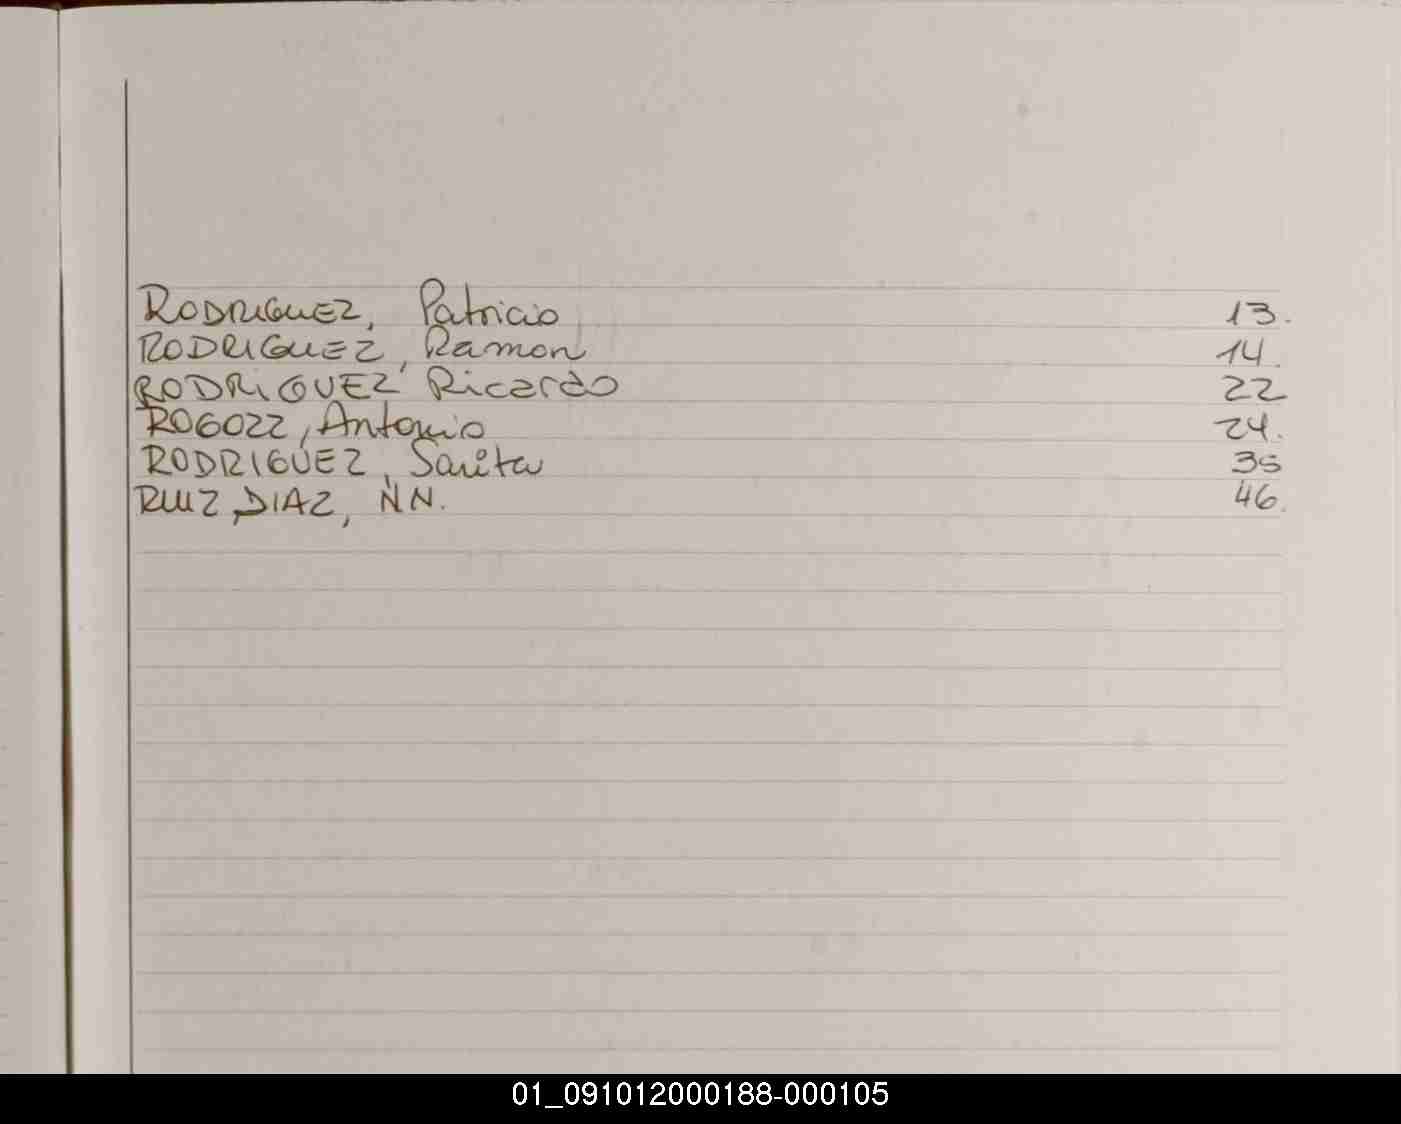 RODRIGUEZ, Patricio 13.
RODRIGUEZ, Ramon 14.
RODRIGUEZ, Ricardo 22
ROGOZZ, Antonio 24.
RODRIGUEZ, Sarita 35
RUIZ DIAZ, N.N. 46.
01_091012000188-000105